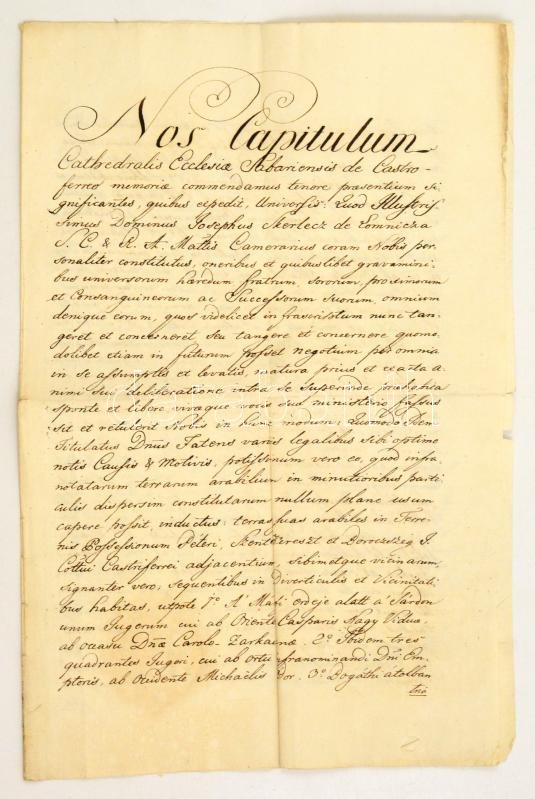 Nos Capitulum
Cathedralis Ecclesiæ Sabariensis de Castro-
ferreo memoriæ commendamus tenore præsentium si-
gnificantes, quibus expedit, Universis: Quod Illustris-
simus Dominus Josephus Skerlecz de Lomnicza
S. C. & R. A. Mattis Camerarius coram Nobis per-
sonaliter constitutus, oneribus et quibuslibet gravamini-
bus universorum hæredum fratrum, sororum, proximorum
et Consanguineorum ac Successorum Suorum, omnium
denique eorum, quos videlicet infrascriptum nunc tan-
geret et concerneret seu tangere et concernere quomo-
dolibet etiam in futurum posset negotium per omnia
in se assumptis et levatis, matura prius et exacta a-
nimi sui deliberatione intra se superinde præhabita
sponte et libere, vivaque vocis suæ ministerio fassus
sit et retulerit Nobis in hunc modum, Quomodo Idem
Titulatus Dnus Fatens variis legalibus Sibi optime
notis Causis & Motivis, potissimum vero eo, quod infra
notatarum terrarum arabilium in minutioribus parti-
culis dispersim constitutarum nullum plane usum
capere possit, inductus; terras suas arabiles in Terre-
nis Possessionum Péteri, Szent Kereszt et Doroszló I.
Cottui Castriferrei adjacentium, sibimetque vicinarum,
signanter vero, sequentibus in Diverticulis et Vicinitati-
bus habitas, utpote 1o A' Máfi erdeje alatt a' Sárdon
unum Jugerum cui ab Oriente Casparis Nagy Vidua,
ab occasu Dnæ Carolo-Zarkaianæ. 2o Ibidem tres
quadrantes Jugeri, cui ab ortu prænominandi Dni Em-
ptoris, ab Occidente Michaelis Dor. 3o Dogáthi átalban